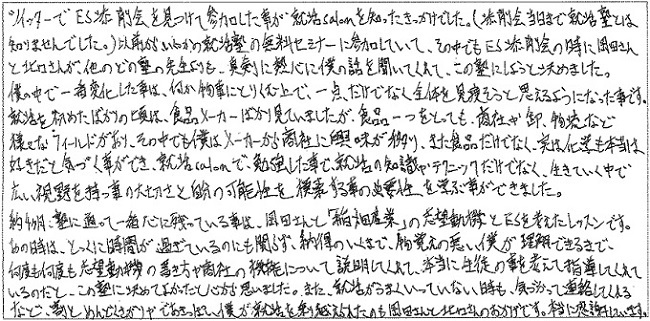 ツイッターでES添削会を見つけて参加した事が就活salonを知ったきっかけでした。(添削会当日まで就活塾とは
知りませんでした。)以前からいくつかの就活塾の無料セミナーに参加していて、その中でもES添削会の時に岡田さん
と北口さんが、他のどの塾の先生よりも、真剣に熱心に僕の話を聞いてくれて、この塾にしようと決めました。
僕の中で一番変化した事は、何か物事にとりくむ上で、一点だけでなく全体を見渡そうと思えるようになった事です。
就活を始めたばかりの頃は、食品メーカーばかり見ていましたが、食品一つをとっても、商社や卸、物流など
様々なフィールドがあり、その中でも僕はメーカーから商社に興味が移り、また食品だけでなく、実は化学も本当は
好きだと気づく事ができ、就活salonで、勉強した事で、就活の知識やテクニックだけでなく、生きていく中で
広い視野を持つ事の大切さと自分の可能性を模索する事の必要性を学ぶ事ができました。
約 塾に通って一番心に残っている事は、岡田さんと「稲畑産業」の志望動機とESを考えたレッスンです。
あの時は、とっくに時間が過ぎているのにも関らず、納得のいくまで、物覚えの悪い僕が理解できるまで、
何度も何度も志望動機の書き方や商社の機能について説明してくれて、本当に生徒の事を考えて指導してくれて
いるのだと、この塾に決めてよかったと心から思いました。また、就活がうまくいっていない時も、気づかって連絡してくれる
などで、 めんどくさがりやであきっぽい僕が就活を乗り越えられたのも岡田さんと北口さんのおかげです。本当に感謝しています。